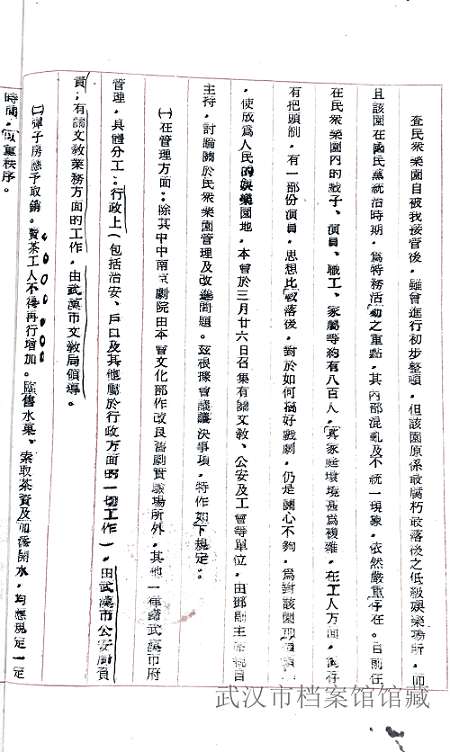 查民衆樂園自被我接管後，雖曾進行初步整頓，但該園原係最腐朽最落後之低級娛樂場所，而
且該園在國民黨統治時期，爲特務活動之重點，其內部混亂及不統一現象，依然嚴重存在。目前在
在民衆樂園內的戲子、演員、職工、家屬等約有八百人，其家庭環境甚爲複雜，在工人方面，尚存
有把頭制，有一部份演員，思想比較落後，對於如何搞好戲劇，仍是關心不夠，爲對該園
，使成爲人民的娛樂園地，本會於三月廿六日召集有關文敎、公安及工會等單位，由鄧副主席親自
主持，討論關於民衆樂園管理及改進問題。茲根據會議議決事項，特作如下規定：
㈠在管理方面：除其中中南京劇院由本會文化部作改良舊劇實驗場所外，其他一律歸武漢市府
管理，具體分工：行政上（包括治安、戶口及其他屬於行政方面的一切工作），由武漢市公安局負
責；有關文敎業務方面的工作，由武漢市文敎局領導。
㈡彈子房應予取銷。賣茶工人不得再行增加。零售水菓、索取茶資及加添開水，均應規定一定
時間，以重秩序。
武汉市档案馆馆藏